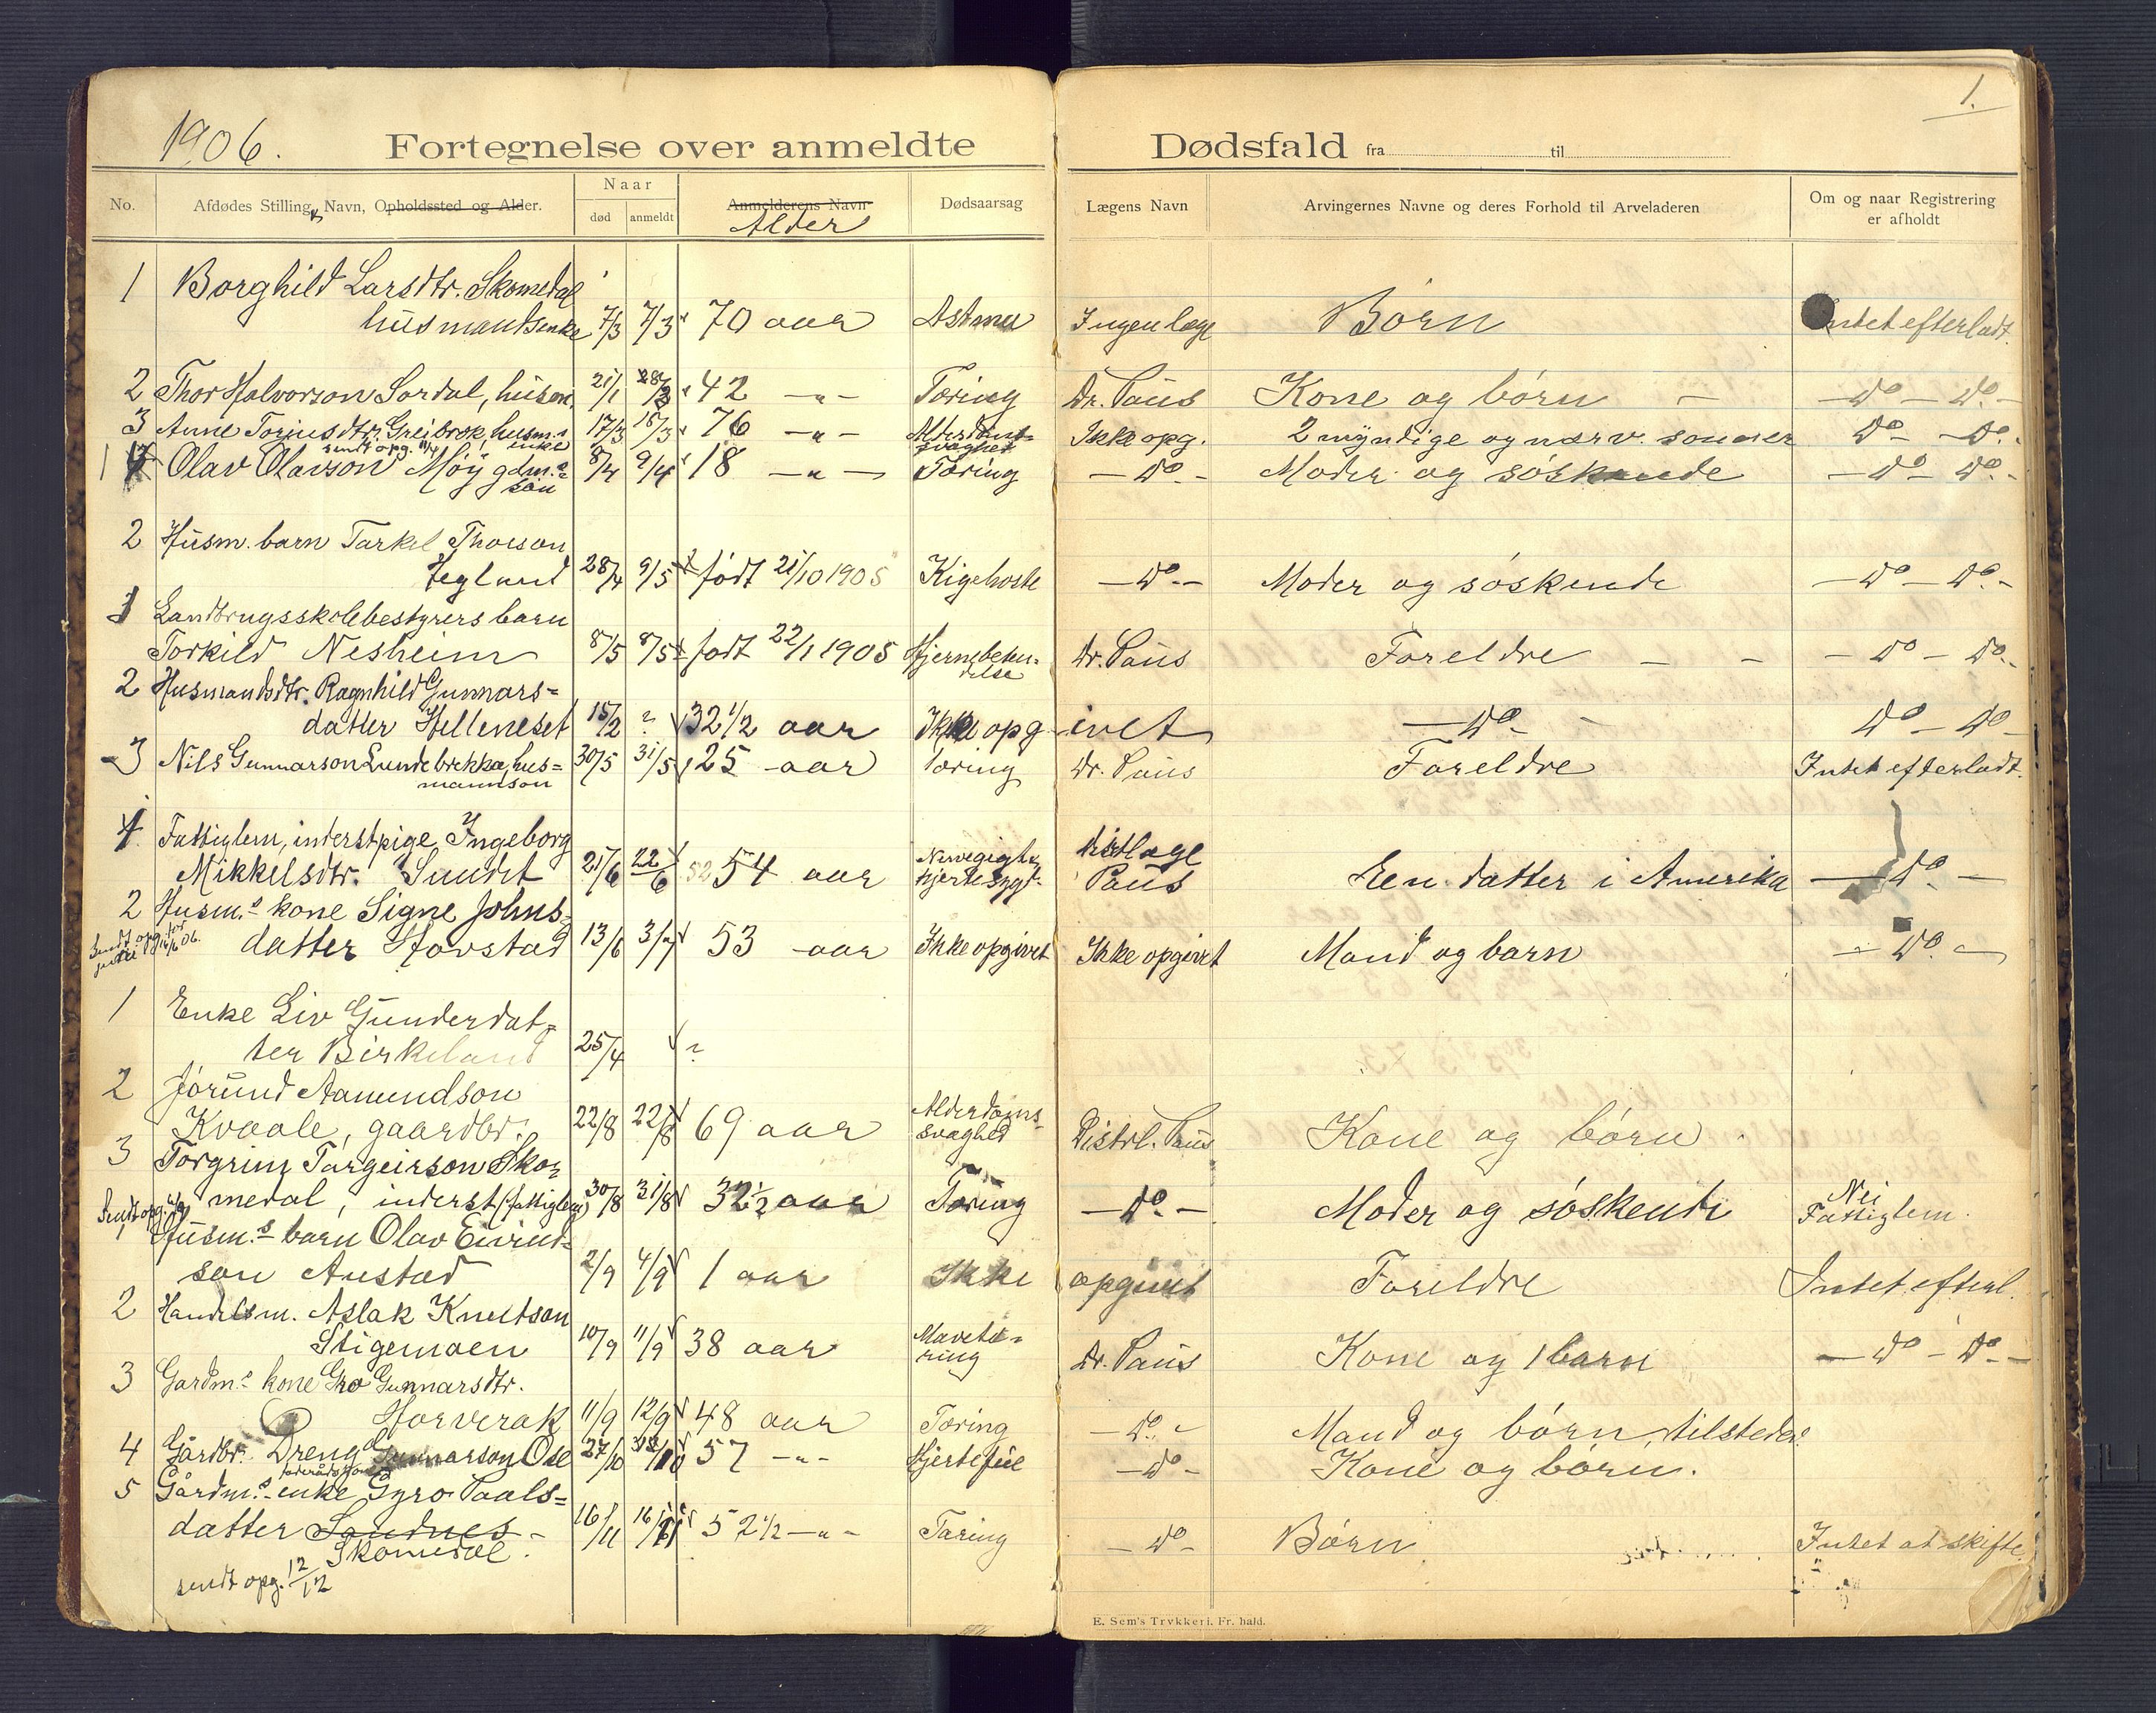 1.
1906.
Fortegnelse over anmeldte Dødsfald fra til
No. Afdødes Stilling, Navn, Opholdssted og Alder. Naar død anmeldt Anmelderens Navn Alder Dødsaarsag Lægens Navn Arvingernes Navne og deres Forhold til Arveladeren Om og naar Registrering er afholdt
1 Borghild Larsdtr. Skomedal
husmandsenke 7/3 7/3 70 aar Astma Ingen læge Børn Intet efterladt.
2 Thor Halvorson Sordal, husm. 21/1 28/2 42 -"- Tæring Dr. Paus Kone og børn - do - do -
3 Anne Torjusdtr. Greibrok husm.s enke 17/3 18/3 76 -"- Alderdomssvaghed Ikke opg. 2 myndige og nærv. sønner do - do.
sendt opg. 11/4
4 Olav Olavson Møy gdm.s søn 8/4 9/4 18 -"- Tæring - do - Moder og søskende - do - do -
2 Husm. barn Tarkel Thorson
Hegland 28/4 9/5 født 21/10 1905 Kigehoste - do - Moder og søskende - do - do -
3 Landbrugsskolebestyrers barn
Torkild Nesheim 8/5 8/5 født 22/1 1905 Hjernebetendelse Dr. Paus Foreldre - do - do -
2 Husmandsdtr. Ragnhild Gunnars=
datter Helleneset 15/2 ? 32 1/2 aar Ikke opgivet - do - do - do -
3 Nils Gunnarson Lundebrekka, hus=
mannsøn 30/5 31/5 25 aar Tæring Dr. Paus Foreldre Intet efterladt.
4 Fattiglem, inderstpige Ingeborg
Mikkelsdtr. Sundet 21/6 22/6 54 aar Nervegigt & hjertesygd. Distlæge Paus Een datter i Amerika - do -
2 Husm.s kone Signe Johns=
datter Hovstad 13/6 3/7 53 aar Ikke opgivet Ikke opgivet Mand og barn - do -
1 Enke Liv Gunderdat=
ter Birkeland 25/4 ?
2 Jørund Aamundson
Kvaale, gaardbr. 22/8 22/8 69 aar Alderdomssvaghed Distrl. Paus Kone og børn
3 Torgrim Targeirson Sko=
medal, inderst (fattiglem) 30/8 31/8 32 1/2 aar Tæring - do - Moder og søskende Nei Fattiglem.
Husm.s barn Olav Eivind=
son Austad 2/9 4/9 1 aar Ikke opgivet Foreldre Intet efterl.
2 Handelsm. Aslak Knutson
Stigemoen 10/9 11/9 38 aar Mavetæring Dr. Paus Kone og 1 barn - do - do -
3 Gardm.s kone Gro Gunnarsdtr.
Horverak 11/9 12/9 48 aar Tæring - do - Mand og børn, tilstede.
4 Gårdbr. Dreng Gunnarson Ose 27/10 57 -"- Hjertefeil - do - Kone og børn.
5 Gårdm.s enke Gyro Paals=
datter Sandnes - 16/11 16/11 52 1/2 -"- Tæring - do - Børn Intet at skifte.
Skomedal.
sendt opg. 12/12
E. Sem's Trykkeri. Fr. hald.